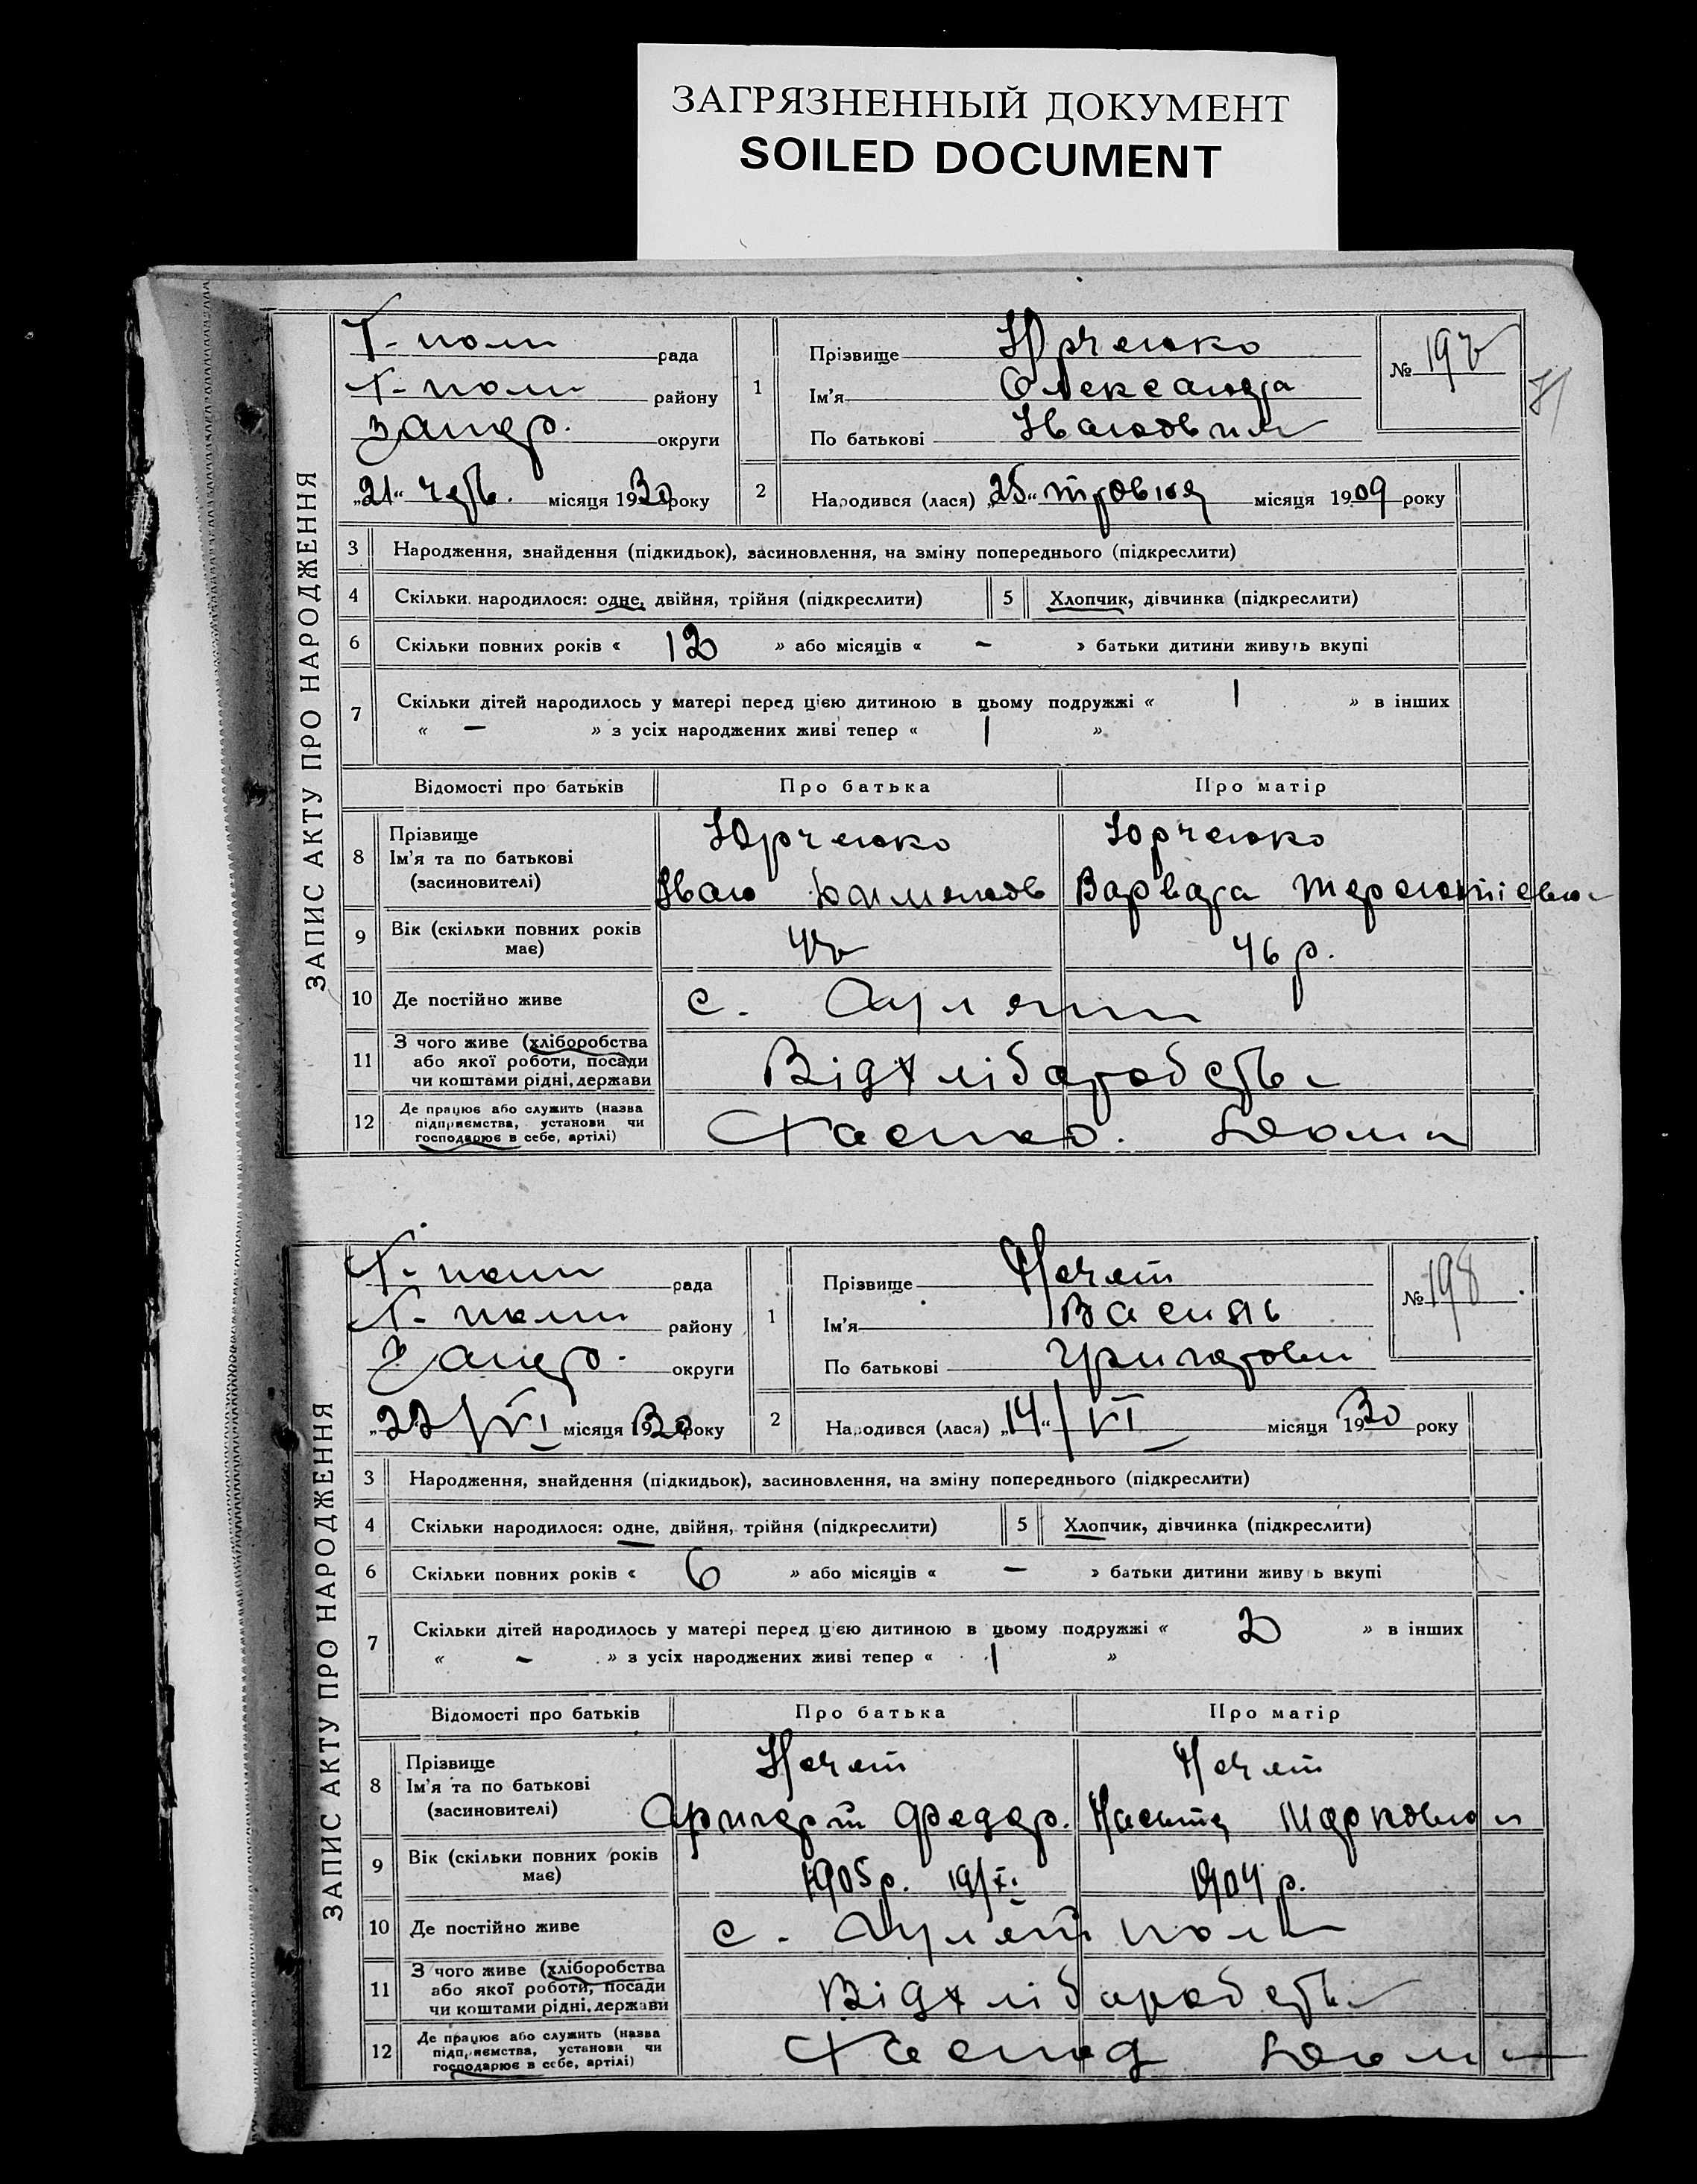 ЗАГРЯЗНЕННЫЙ ДОКУМЕНТ
SOILED DOCUMENT
ЗАПИС АКТУ ПРО НАРОДЖЕННЯ
Г-поли рада
Г-поли району
Запор. округи
„21“ черв. місяця 1930 року
1 Прізвище Юрченко
Ім'я Олександр
По батькові Іванович
№ 197
2 Народився (лася) „25“ травня місяця 1909 року
3 Народження, знайдення (підкидьок), засиновлення, на зміну попереднього (підкреслити)
4 Скільки народилося: одне, двійня, трійня (підкреслити) 5 Хлопчик, дівчинка (підкреслити)
6 Скільки повних років « 12 » або місяців « - » батьки дитини живуть вкупі
7 Скільки дітей народилось у матері перед цією дитиною в цьому подружжі « 1 » в інших
« - » з усіх народжених живі тепер « 1 »
Відомості про батьків Про батька Про матір
8 Прізвище Юрченко Юрченко
Ім'я та по батькові
(засновителі) Іван Варвара
9 Вік (скільки повних років має) 46 р.
10 Де постійно живе с.
11 З чого живе (хліборобства
або якої роботи, посади
чи коштами рідні, держави Від хліборобства
12 Де працює або служить (назва
підприємства, установи чи
господарює в себе, артілі)
ЗАПИС АКТУ ПРО НАРОДЖЕННЯ
Г-поли рада
Г-поли району
Запор. округи
„22/VI місяця 1930 року
1 Прізвище Нечет
Ім'я Василь
По батькові Григорович
№ 198
2 Народився (лася) „14“/VI місяця 1930 року
3 Народження, знайдення (підкидьок), засиновлення, на зміну попереднього (підкреслити)
4 Скільки народилося: одне, двійня, трійня (підкреслити) 5 Хлопчик, дівчинка (підкреслити)
6 Скільки повних років « 6 » або місяців « - » батьки дитини живу ь вкупі
7 Скільки дітей народилось у матері перед цією дитиною в цьому подружжі « 2 » в інших
« - » з усіх народжених живі тепер « 1 »
Відомості про батьків Про батька Про матір
8 Прізвище Нечет Нечет
Ім'я та по батькові
(засиновителі) Григорій Федор. Марковна
9 Вік (скільки повних років має) 1905 р. 1904 р.
10 Де постійно живе с. Гуляй поли
11 З чого живе (хліборобства
або якої роботи, посади
чи коштами рідні, держави Від хліборобства
12 Де працює або служить (назва
підприємства, установи чи
господарює в себе, артілі)